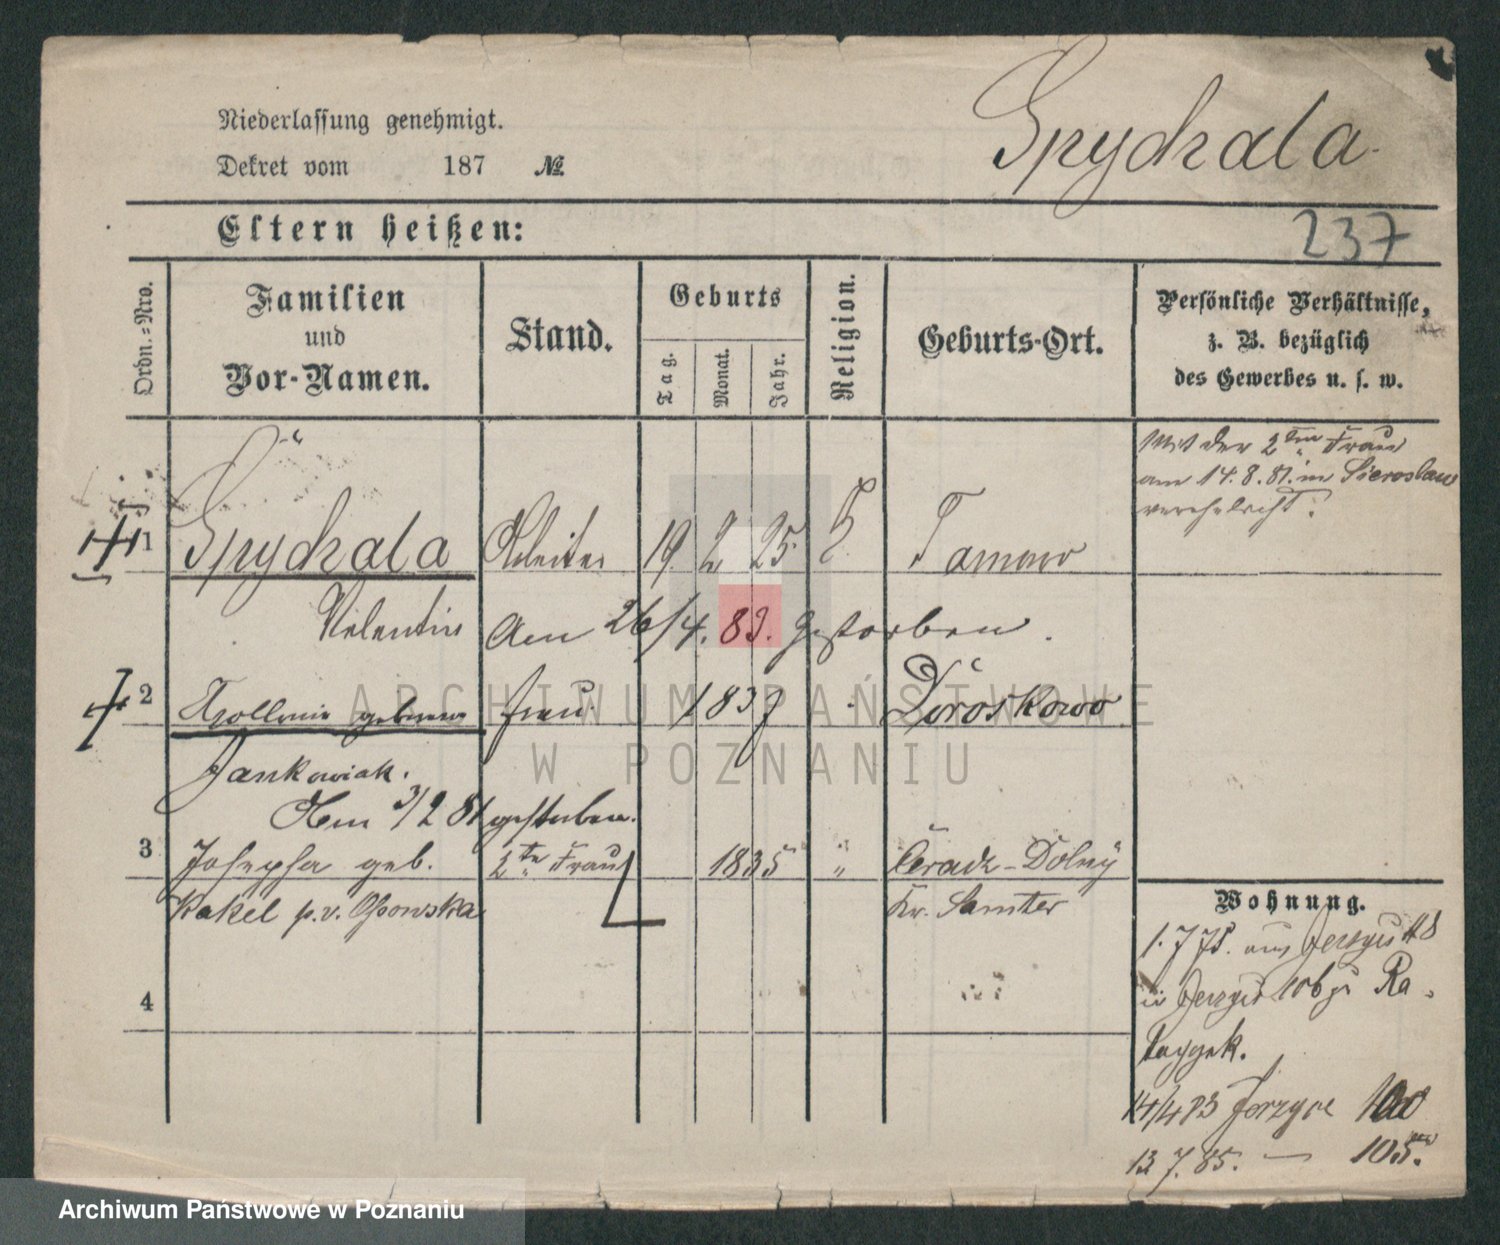 Niederlassung genehmigt.
Spychala
Dekret vom 187 №
Eltern heißen:
237
Ordn.=Nro.
Familien
und
Vor-Namen.
Stand.
Geburts
Tag.
Monat.
Jahr.
Religion.
Geburts-Ort.
Persönliche Verhältnisse,
z. B. bezüglich
des Gewerbes u. s. w.
Mit der 2ten Frau
am 14.8.81. in Sieroslaw
verehelicht.
1 Spychala Arbeiter 19. 2 25. K Tarnowo
Valentin Am 26/4. 83. gestorben.
2 Apollonia geborene Frau 1837 Doroskowo
Jankowiak.
Am 3/2 81 gestorben.
3 Josepha geb. 2te Frau 1835 " Ceradz-Dolny
Kakel p.v. Ossowska Kr. Samter
4
Wohnung.
1. 7 75. aus Jerzyce 118
in Jerzyce 106 zu Ra-
tayczak.
14/4 83 Jerzyce 100
13. 7. 85. — 105.
ARCHIWUM PAŃSTWOWE
W POZNANIU
Archiwum Państwowe w Poznaniu